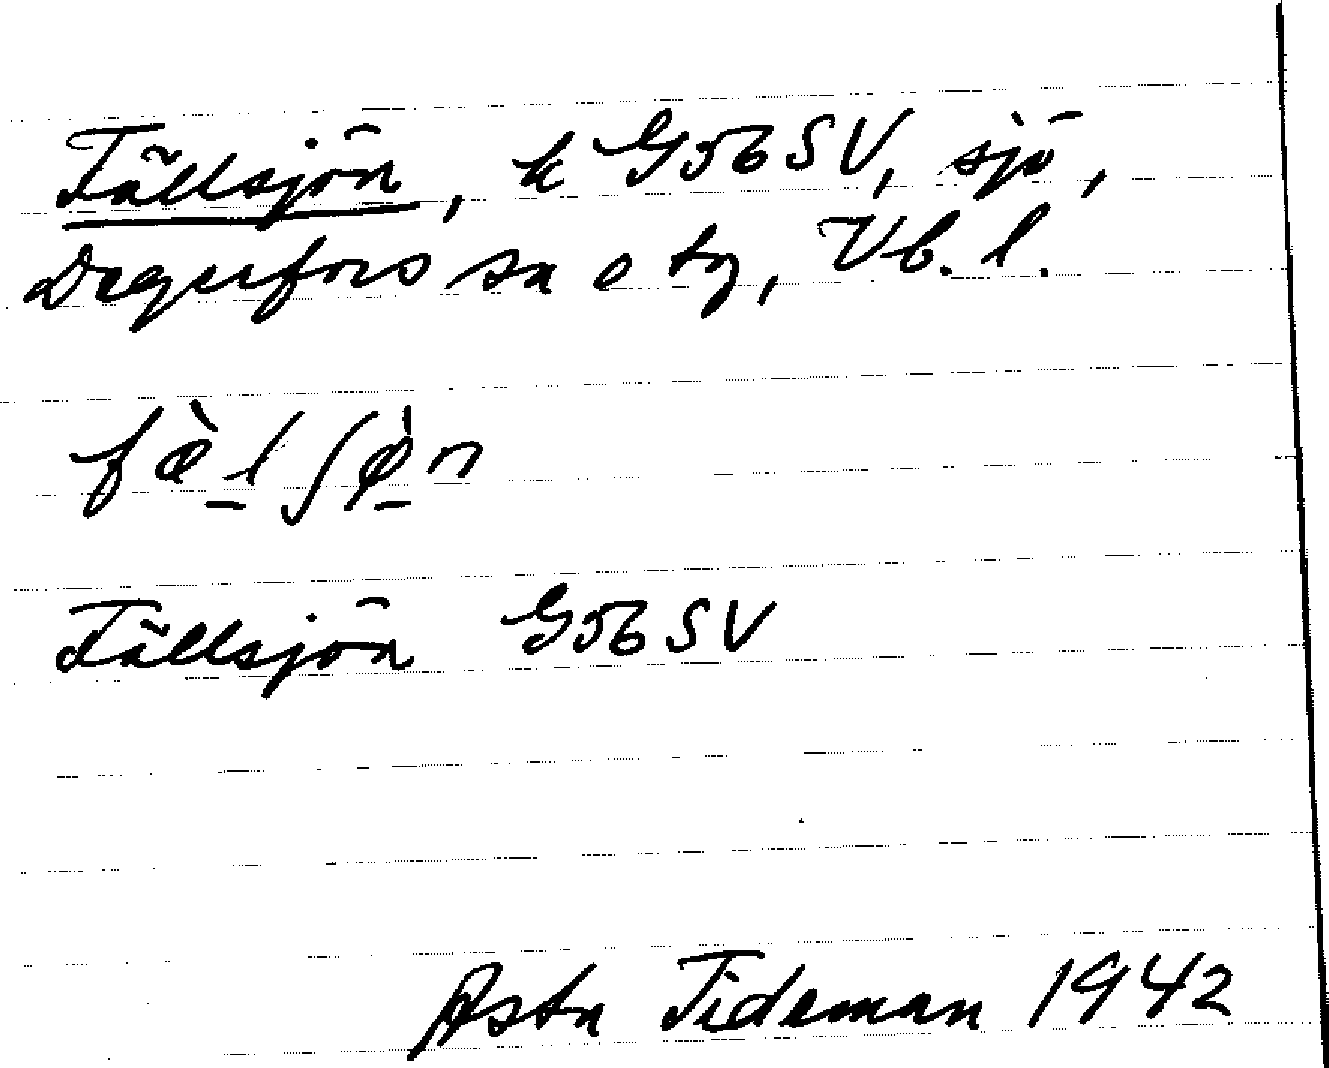 Fällsjön, k G56SV, sjö,
Degerfors sn o tg, Vb. l.
fæ̀l ʃø̀n
Fällsjön G56SV
Asta Tideman 1942